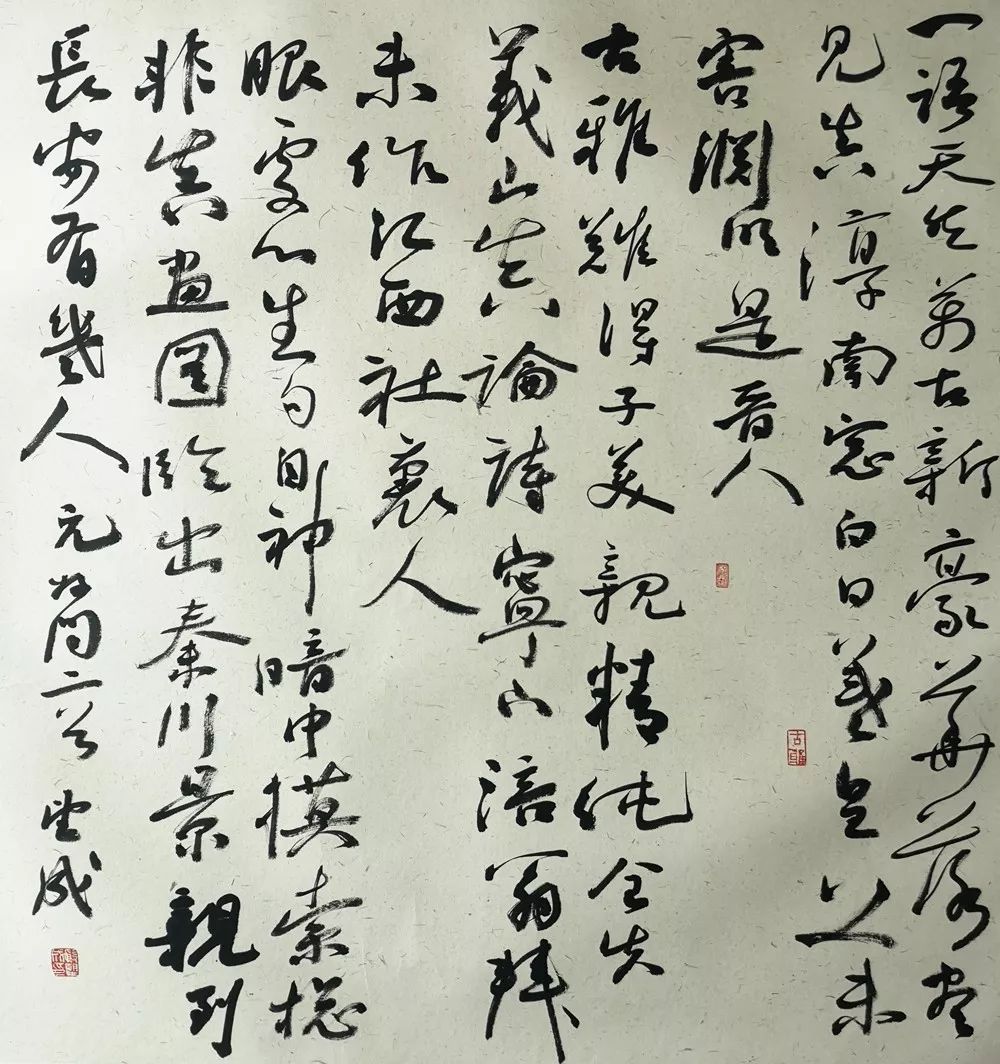 一語天然萬古新豪華落盡
見真淳南窓白日羲皇上人未
害淵明是晉人
古雅難得子美親精純全失
義山真論詩寧下涪翁拜
未作江西社裏人
眼處心生句自神暗中摸索總
非真畫圖臨出秦川景親到
長安有幾人 元好問三首 成